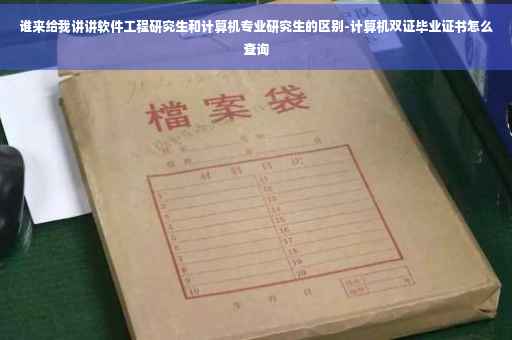 谁来给我讲讲软件工程研究生和计算机专业研究生的区别-计算机双证毕业证书怎么
查询
檔案袋
材料目次
1
2
3
4
5
6
7
8
9
10
11
12
13
14
15
16
17
18
19
20
年 月 日